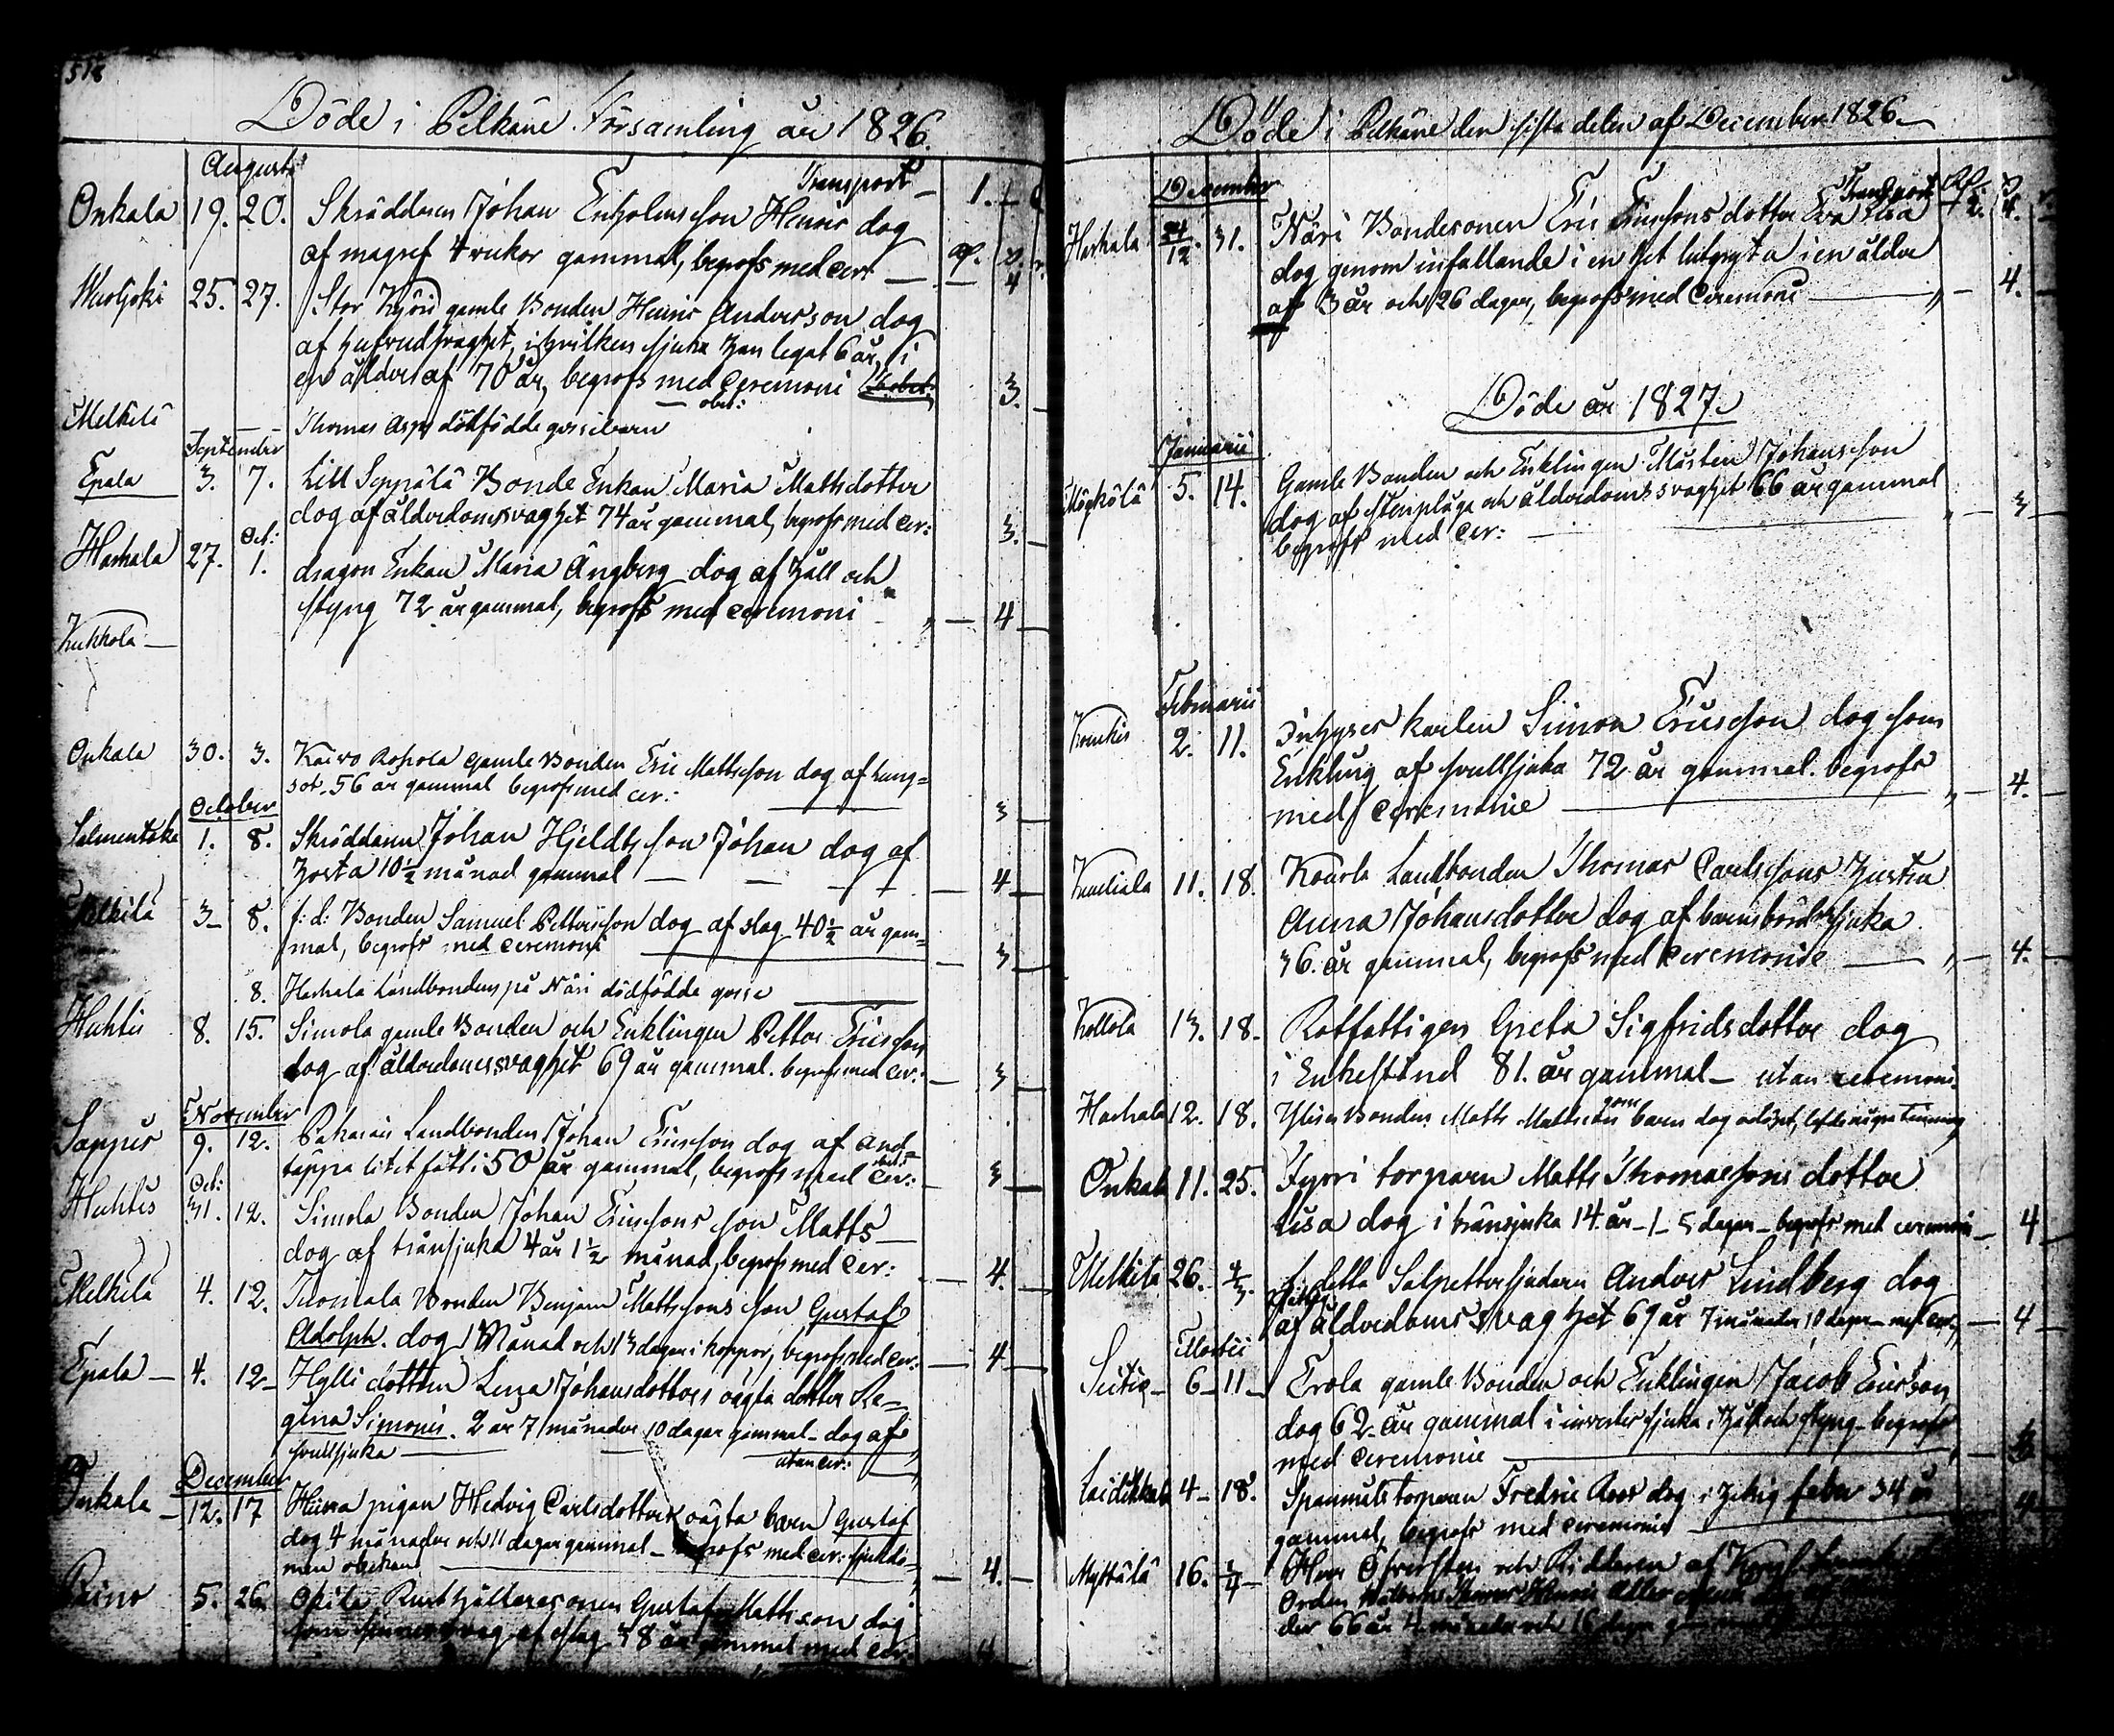 Döde i Pelkäne Församling år 1826.
Augusti
Transport 1.
Onkala 19. 20. Skräddaren Johan Enholms son Henric dog
af magref 4 veckor gammal, begrofs med cer 4
25. 27. Stor Kyrö gamle Bonden Henric Andersson dog
af hufvudsvaghet, i hvilken sjuka han legat 6 år, i
en ålder af 70 år, begrofs med Ceremoni 3.
obet:
Mälkilä Thomas Asps dödfödde gossebarn
September
Epala 3. 7. Lill Seppälä Bonde Enkan Maria Mattsdotter
dog af ålderdomssvaghet 74 år gammal, begrofs med Cer: 3.
Oct:
Harhala 27. 1. dragon Enkan Maria Ångberg dog af håll och
styng 72 år gammal, begrofs med ceremoni 4
Kukkola
Onkala 30. 3. Kaivo Rohola gamle Bonden Eric Mattsson dog af lung=
sot. 56 år gammal begrofs med cer: 3
October
Salmentaka 1. 8. Skräddaren Johan Hjeldts son Johan dog af
hosta 10½ månad gammal 4
Mälkilä 3 8. f: d: Bonden Samuel Pettersson dog af slag 40½ år gam=
mal, begrofs med ceremoni 3
8. Harhala Landbondens på Näri dödfödde gosse
Huhtis 8. 15. Simola gamle Bonden och Enklingen Petter Ericsson
dog af ålderdomssvaghet 69 år gammal. begrofs med cer: 3
November
Sappus 9. 12. Landbonden Johan Ericsson dog af and=
täppa 50 år gammal, begrofs med Cer: 3
Oct:
Huhtis 31. 12. Simola Bonden Johan Ericssons son Matts
dog af transjuka 4 år 1½ månad, begrofs med Cer: 4
Mälkilä 4. 12. Tuomala Bonden Benjam Mattssons son Gustaf
Adolph. dog 1 Månad och 13 dagar i koppor, begrofs med Cer: 4
Epala 4. 12 Hylli dottern Lena Johansdotters oägta dotter Re=
gina Simonis. 2 år 7 månader 10 dagar gammal dog af
svullsjuka utan cer:
December
Onkala 12. 17 Heina pigan Hedvig Carlsdotters oägta barn Gustaf
dog 4 månader och 11 dagar gammal begrofs med cer: sjukdo=
men obekant 4.
5. 26. Rusthållaresonen Gustaf Mattsson dog
af slag 38 år gammal med cer: 4
Döde i Pelkäne den sista delen af December 1826
December
Transport
Harhala 24/12. 31. Näri Bondesonen Eric Ericssons dotter Eva Lisa
dog genom infallande i en het lutgryta i en ålder
af 3 år och 26 dagar, begrofs med Ceremoni 4.
Döde år 1827.
Januarii
5. 14. Gamle Bonden och Enklingen Mårten Johansson
dog af stenplåga och ålderdomssvaghet 66 år gammal
begrofs med Cer: 3
Februarii
2. 11. Inhyses karlen Simon Ericsson dog som
Enkling af svullsjuka 72 år gammal. begrofs
med Ceremonie 4.
11. 18. Landbonden Thomas Carlssons hustru
Anna Johansdotter dog af barnsbördssjuka
36. år gammal, begrofs med Ceremonie 4.
Kollola 13. 18. Rotfattigen Greta Sigfridsdotter dog
i Enkestånd 81. år gammal utan ceremoni
Harhala 12. 18. Bonden Matts Mattssons barn dog odöpt, lefde några timmar
Onkala 11. 25. Torparen Matts Thomassons dotter
Lisa dog i transjuka 14 år 1 5 dagar begrofs med ceremoni 4
Mälkilä 26. 4/3. f. detta Salpettersjudaren Anders Lindberg dog
af ålderdomssvaghet 69 år 7 månader 10 dagar med cer 4
Martii
6 11 Erola gamle Bonden och Enklingen Jacob Ericsson
dog 62 år gammal i invertes sjuka, håll och styng begrofs
med ceremonie
Laitikkala 4 18. torparen Fredric Roos dog i hetsig feber 34 år
gammal, begrofs med ceremonie 4
Myttälä 16. 1/4 Herr Öfversten och Riddaren af
Orden
der 66 år 4 månader och 16 dagar